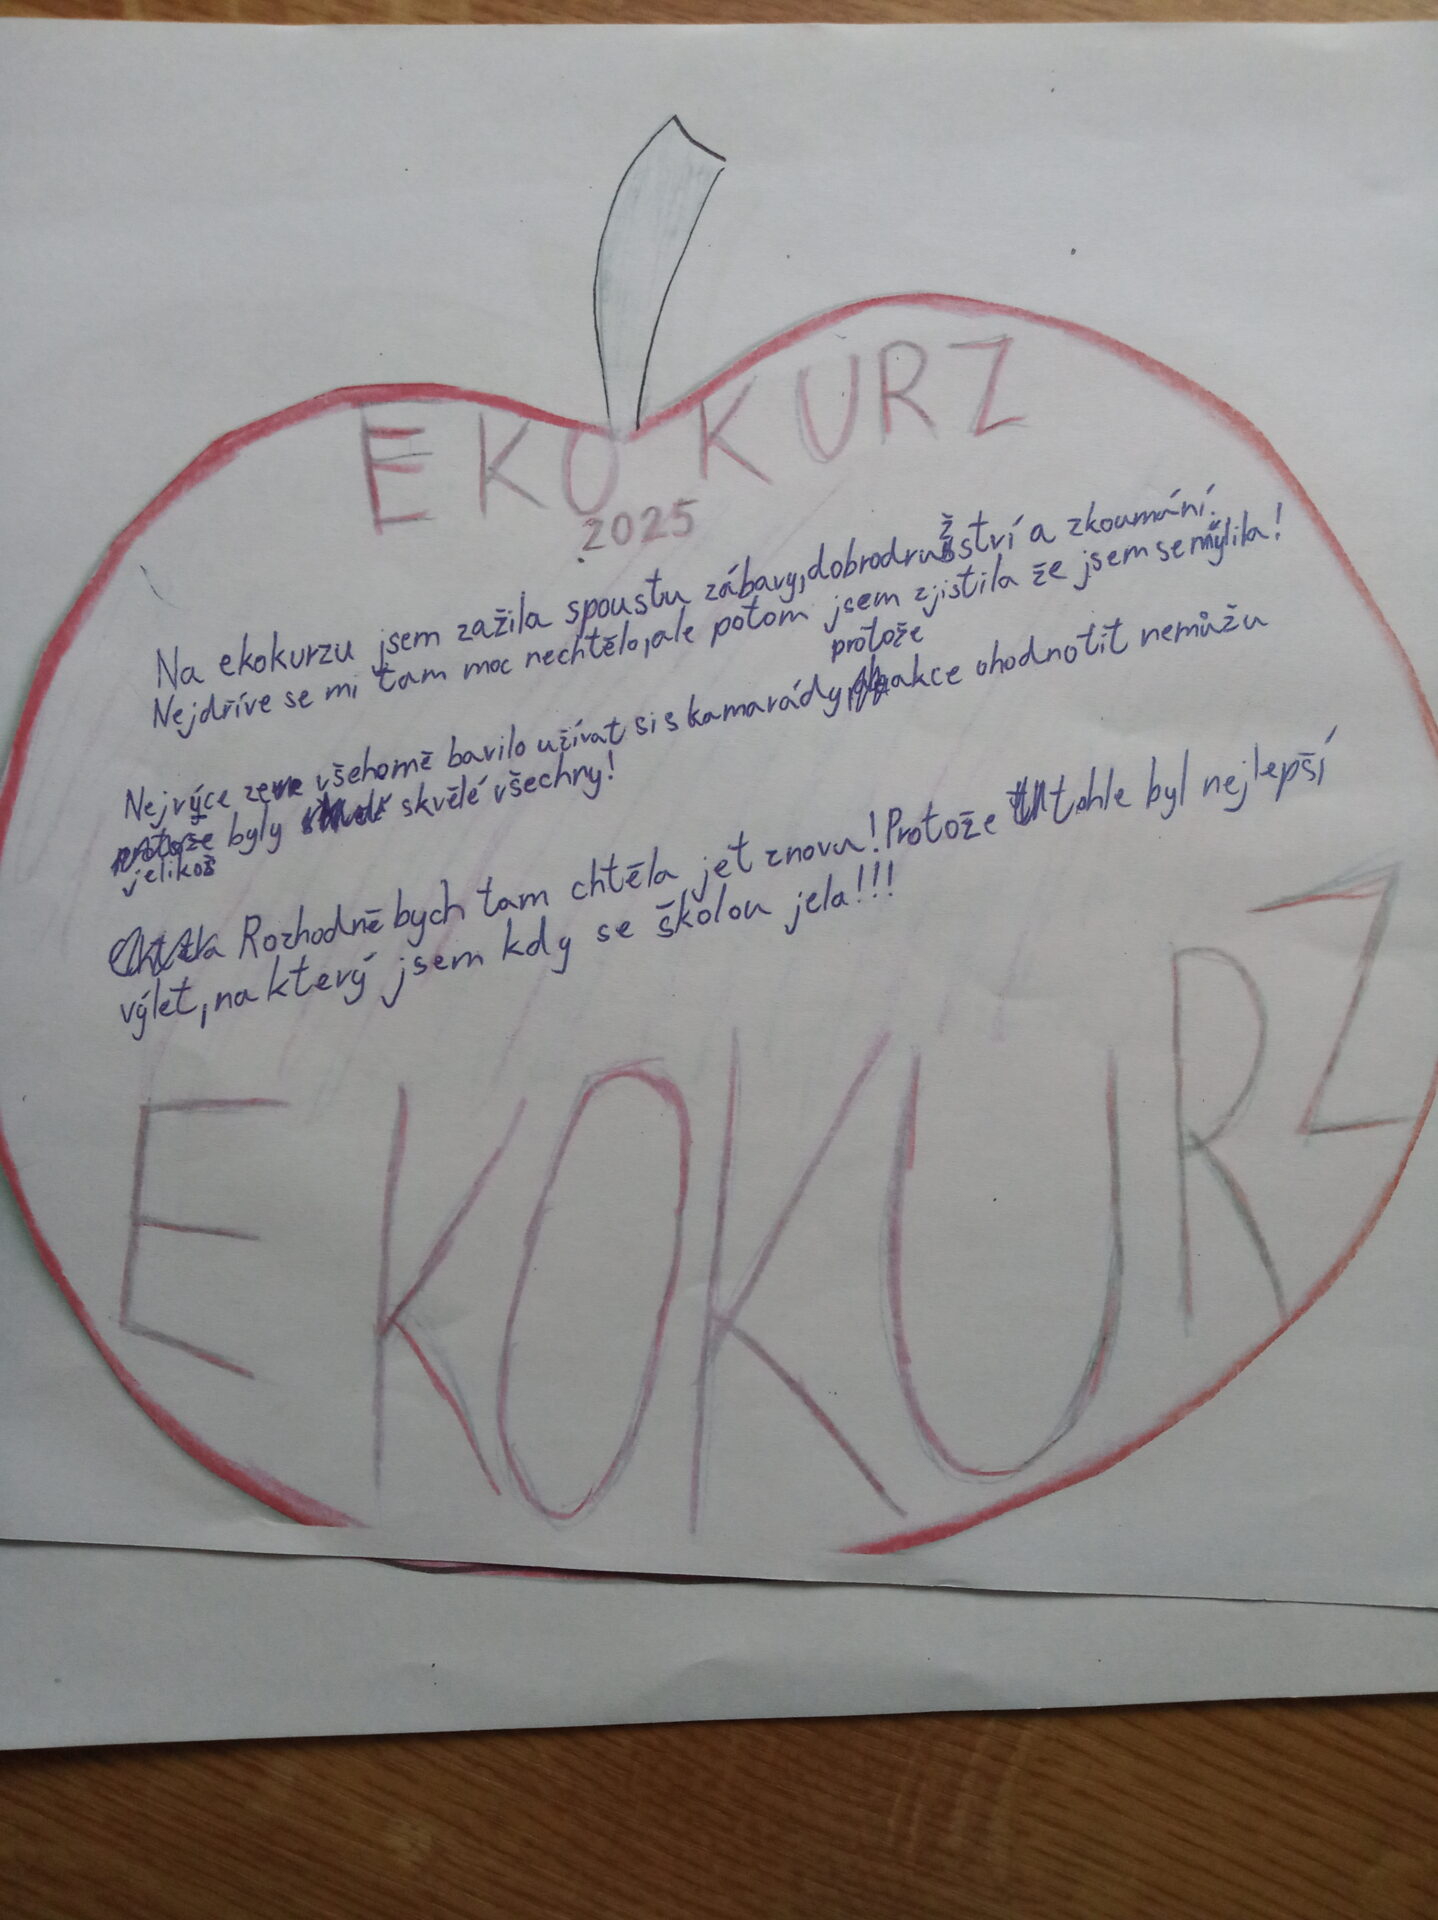 EKOKURZ
2025
Na ekokurzu jsem zažila spoustu zábavy, dobrodružství a zkoumání.
Nejdříve se mi tam moc nechtělo, ale potom jsem zjistila že jsem se mýlila!
protože
Nejvýce ze všeho mě bavilo užívat si s kamarády, akce ohodnotit nemůžu
protože byly skvělé všechny!
jelikož
Rozhodně bych tam chtěla jet znovu! Protože tohle byl nejlepší
výlet, na který jsem kdy se školou jela!!!
EKOKURZ